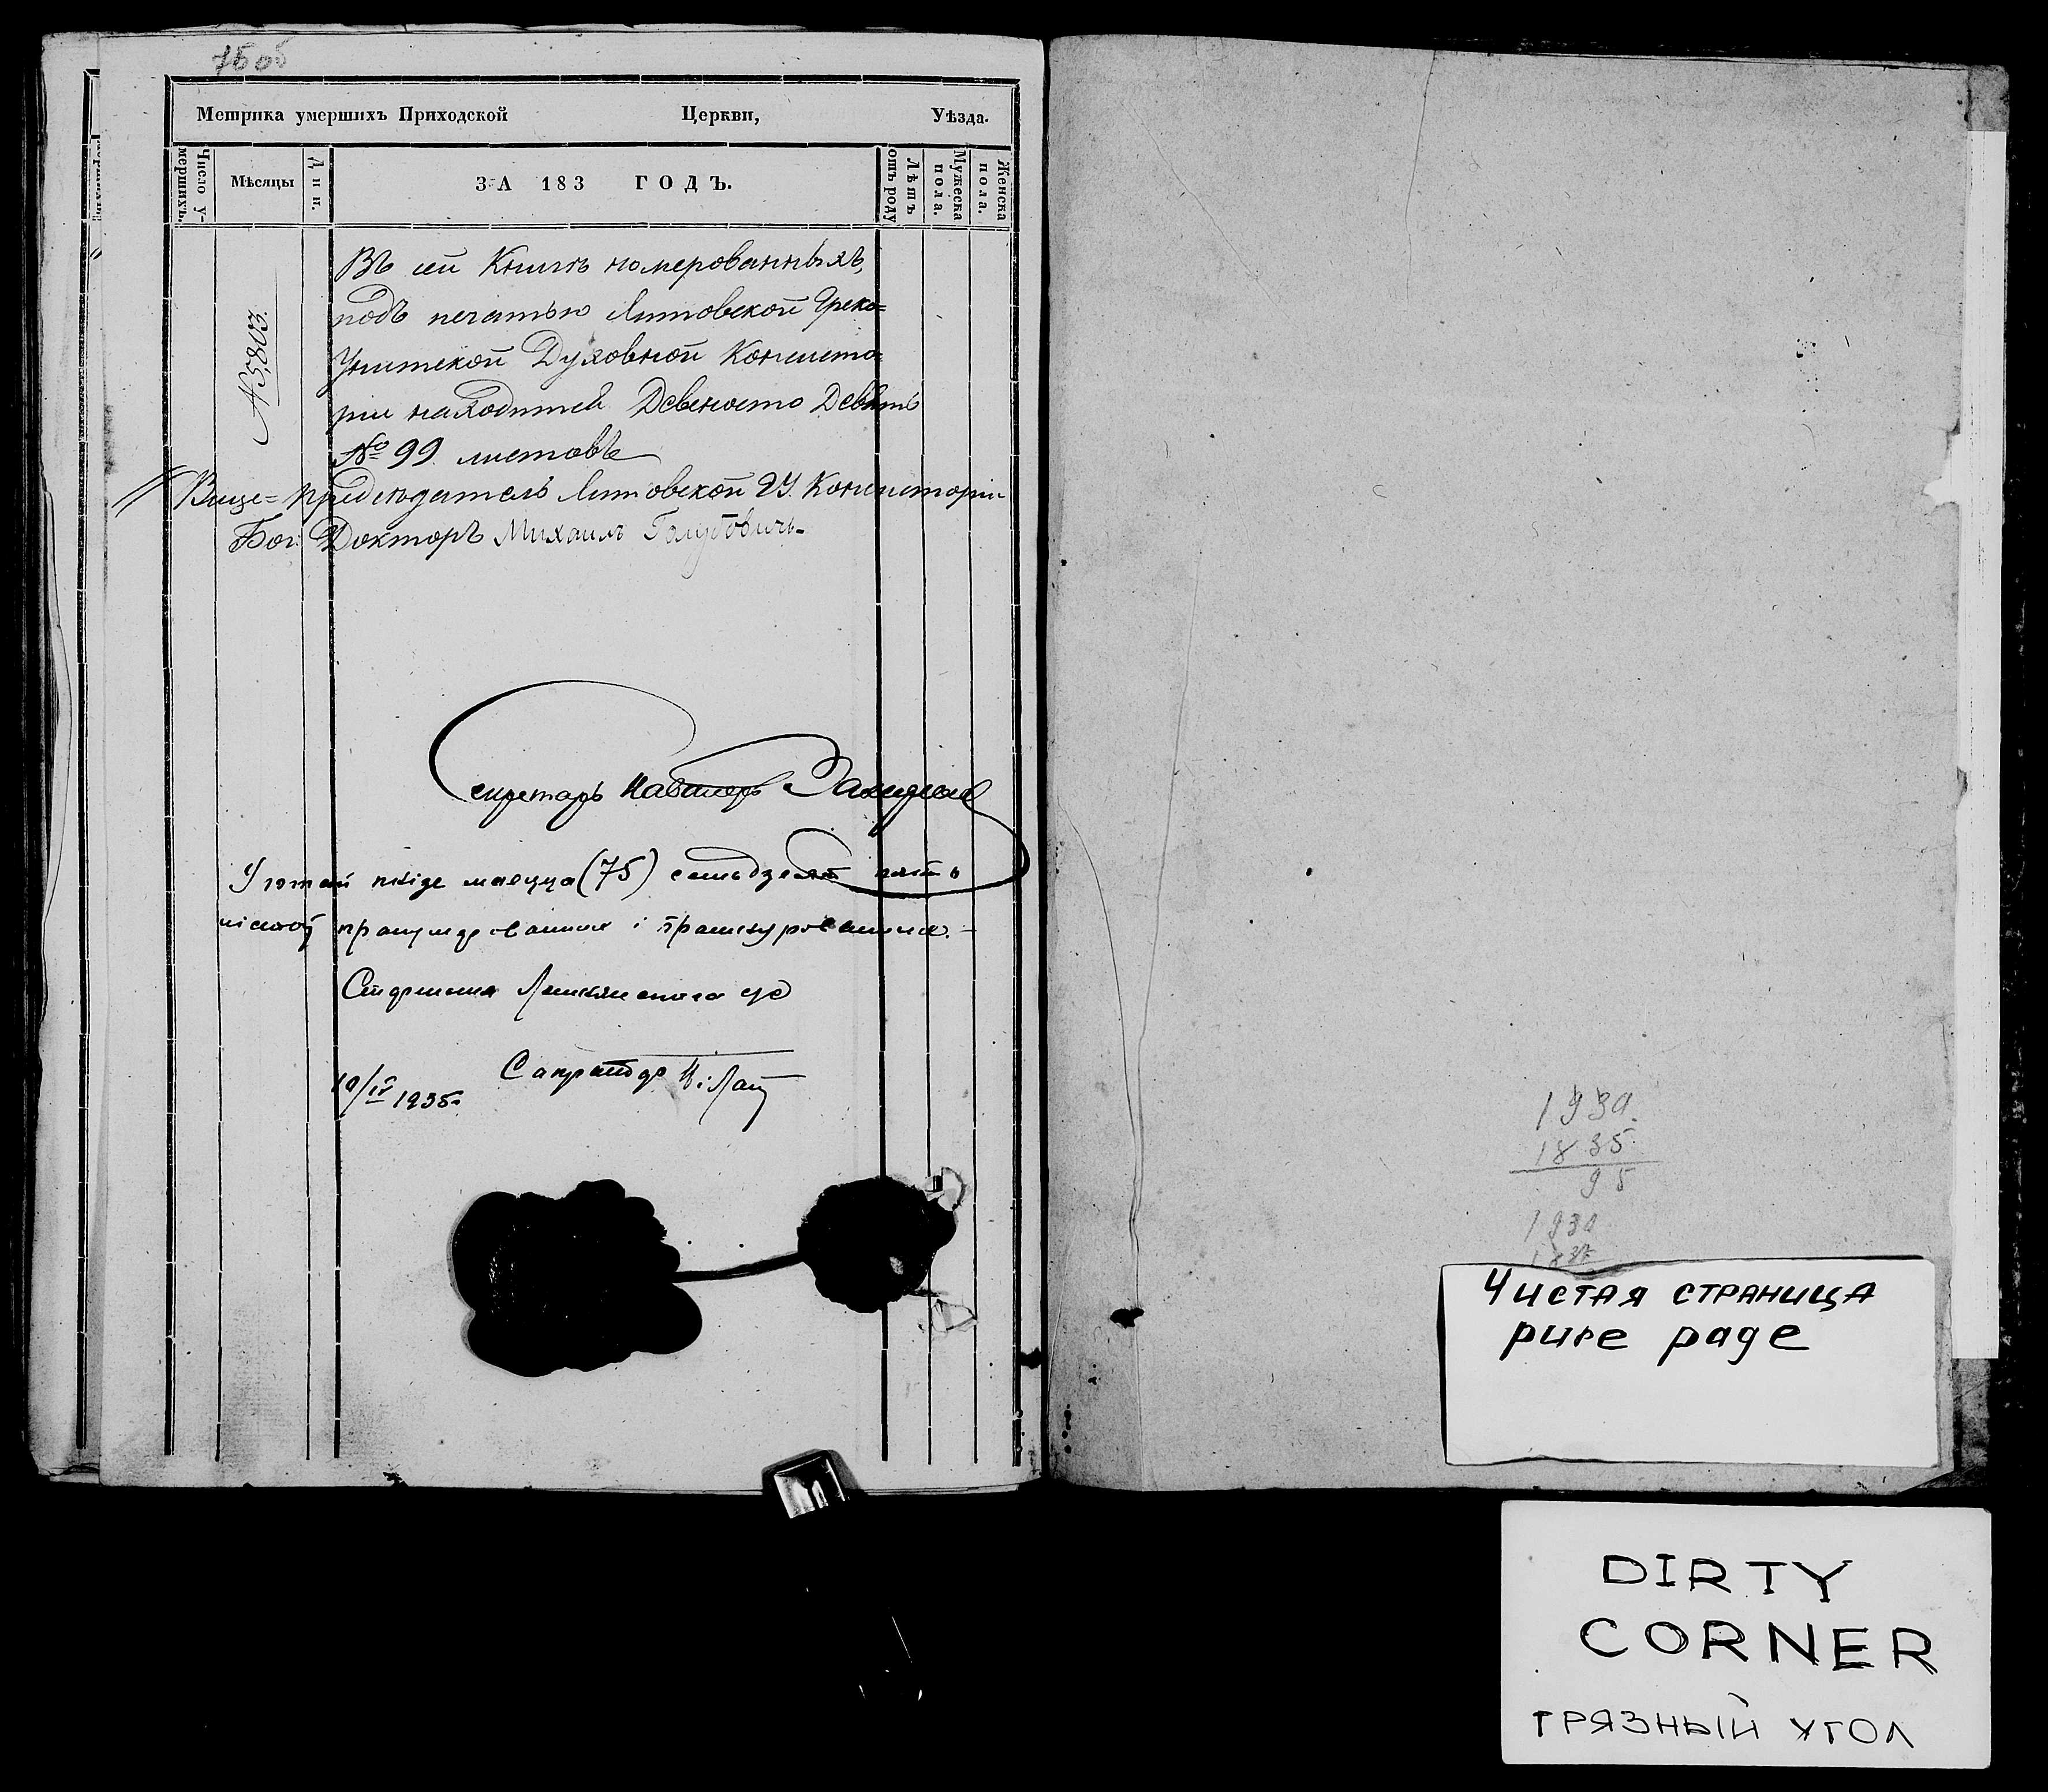 75об
Метрика умершихъ Приходской Церкви, Уѣзда.
Число умершихъ.
Мѣсяцы
Дни.
ЗА 183 ГОДЪ.
Лѣтъ отъ роду
Мужеска пола.
Женска пола.
№ 5,803.
Въ сей Книгѣ номерованныхъ,
подъ печатью Литовской Греко=
Унитской Духовной Консисто=
ріи находится Девеносто Девять
№ 99 листовъ
Вице=Председатель Литовской ГУ. Консисторіи
Бог: Докторъ Михаилъ Голубовичь
Секретарь
У гэтай кнiзе маецца (75) семьдзесят пять
лiстоў пранумерованных i прашнурованных.
10/IV 1935г.
1930.
1835.
95
1930
1837
Чистая страница
pure page
DIRTY
CORNER
грязный угол